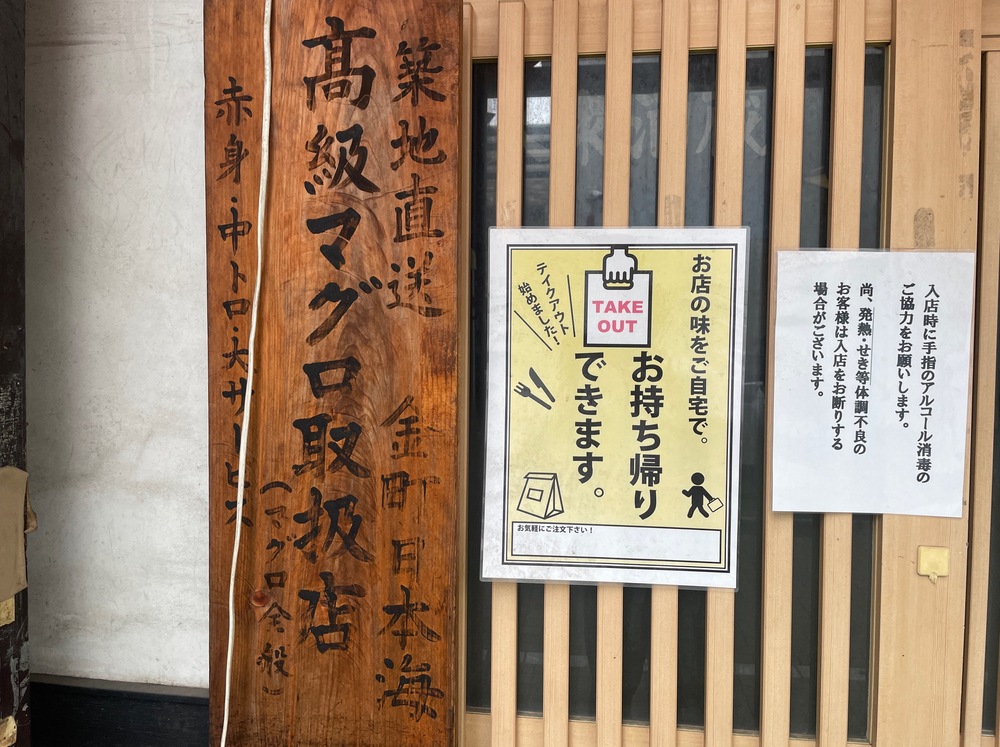 築地直送 金町日本海
高級マグロ取扱店
(マグロ全般)
赤身・中トロ・大サービス
お店の味をご自宅で。
TAKE
OUT
お持ち帰り
できます。
テイクアウト
始めました!
お気軽にご注文下さい!
入店時に手指のアルコール消毒の
ご協力をお願いします。
尚、発熱・せき等体調不良の
お客様は入店をお断りする
場合がございます。